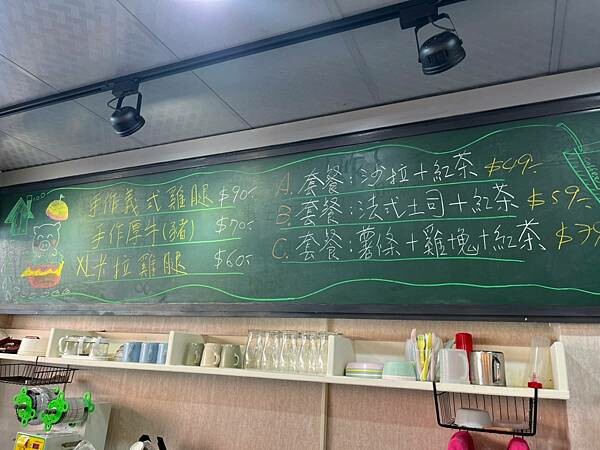 手作義式雞腿 $90.-
手作厚牛(豬) $70.-
XL卡拉雞腿 $60.-
A. 套餐：沙拉+紅茶 $49.-
B. 套餐：法式土司+紅茶 $59.-
C. 套餐：薯條+雞塊+紅茶